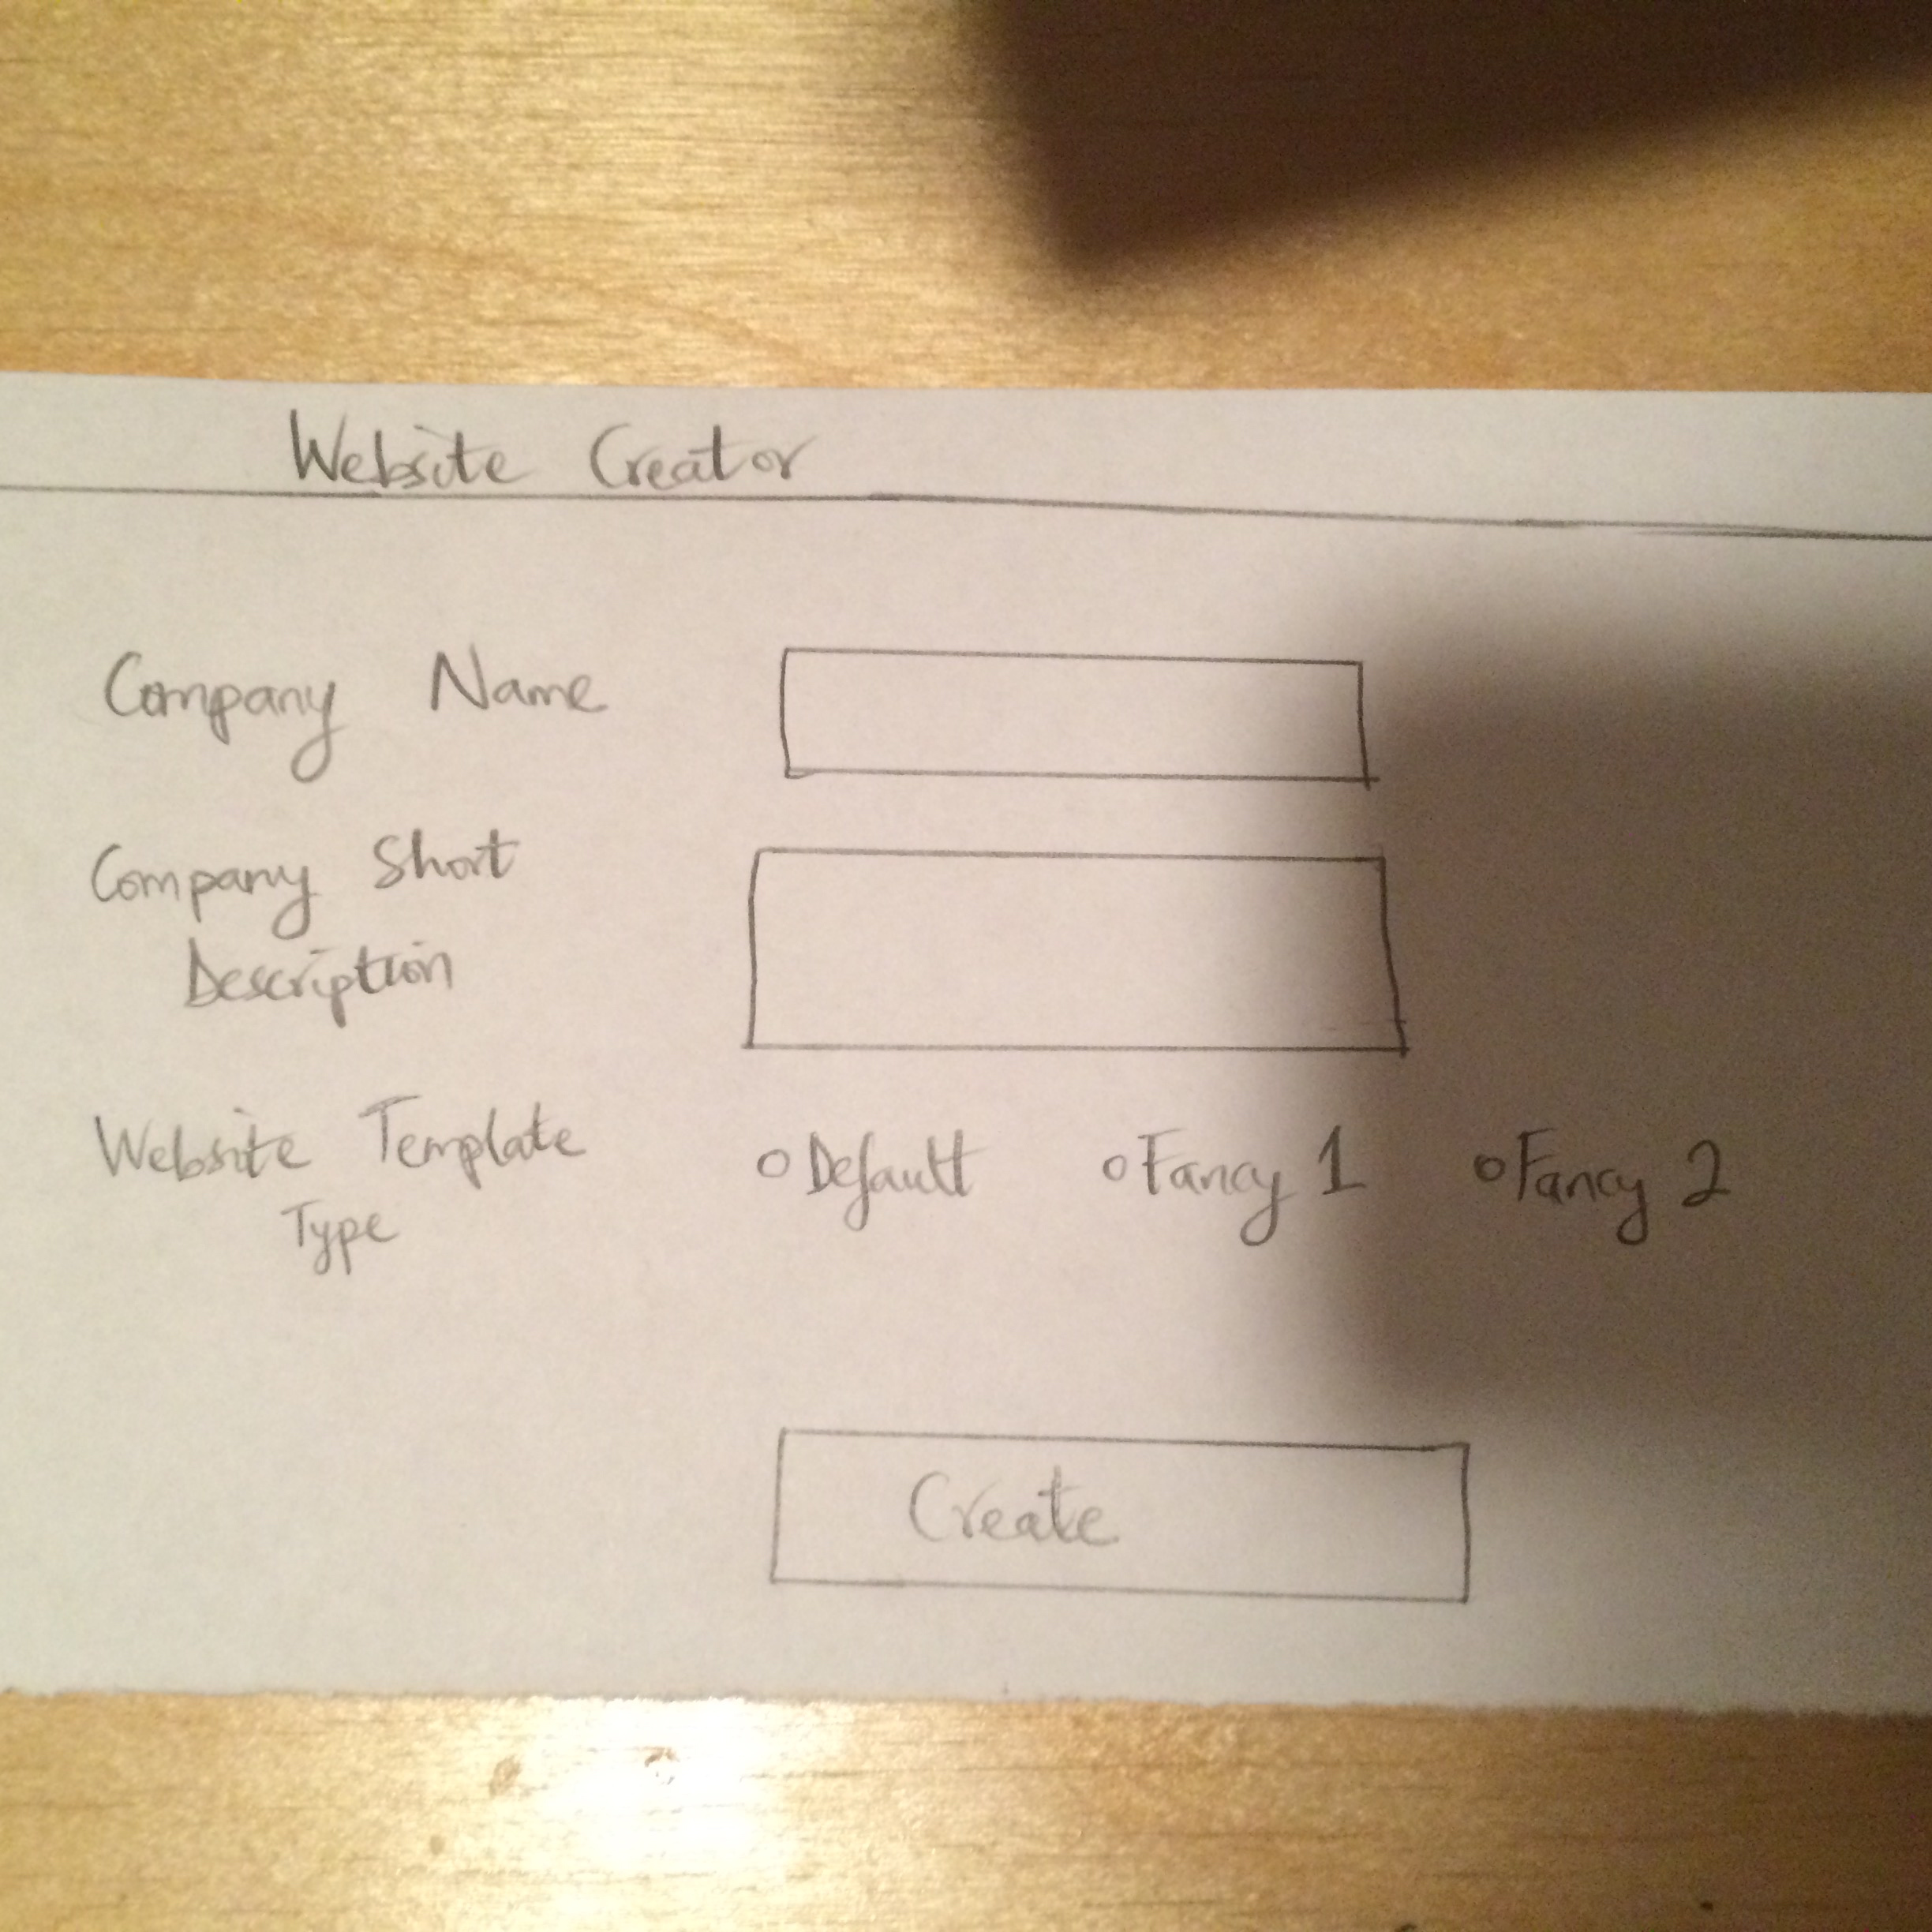 Website Creator
Company Name
Company Short
Description
Website Template
Type
Default Fancy 1 Fancy 2
Create